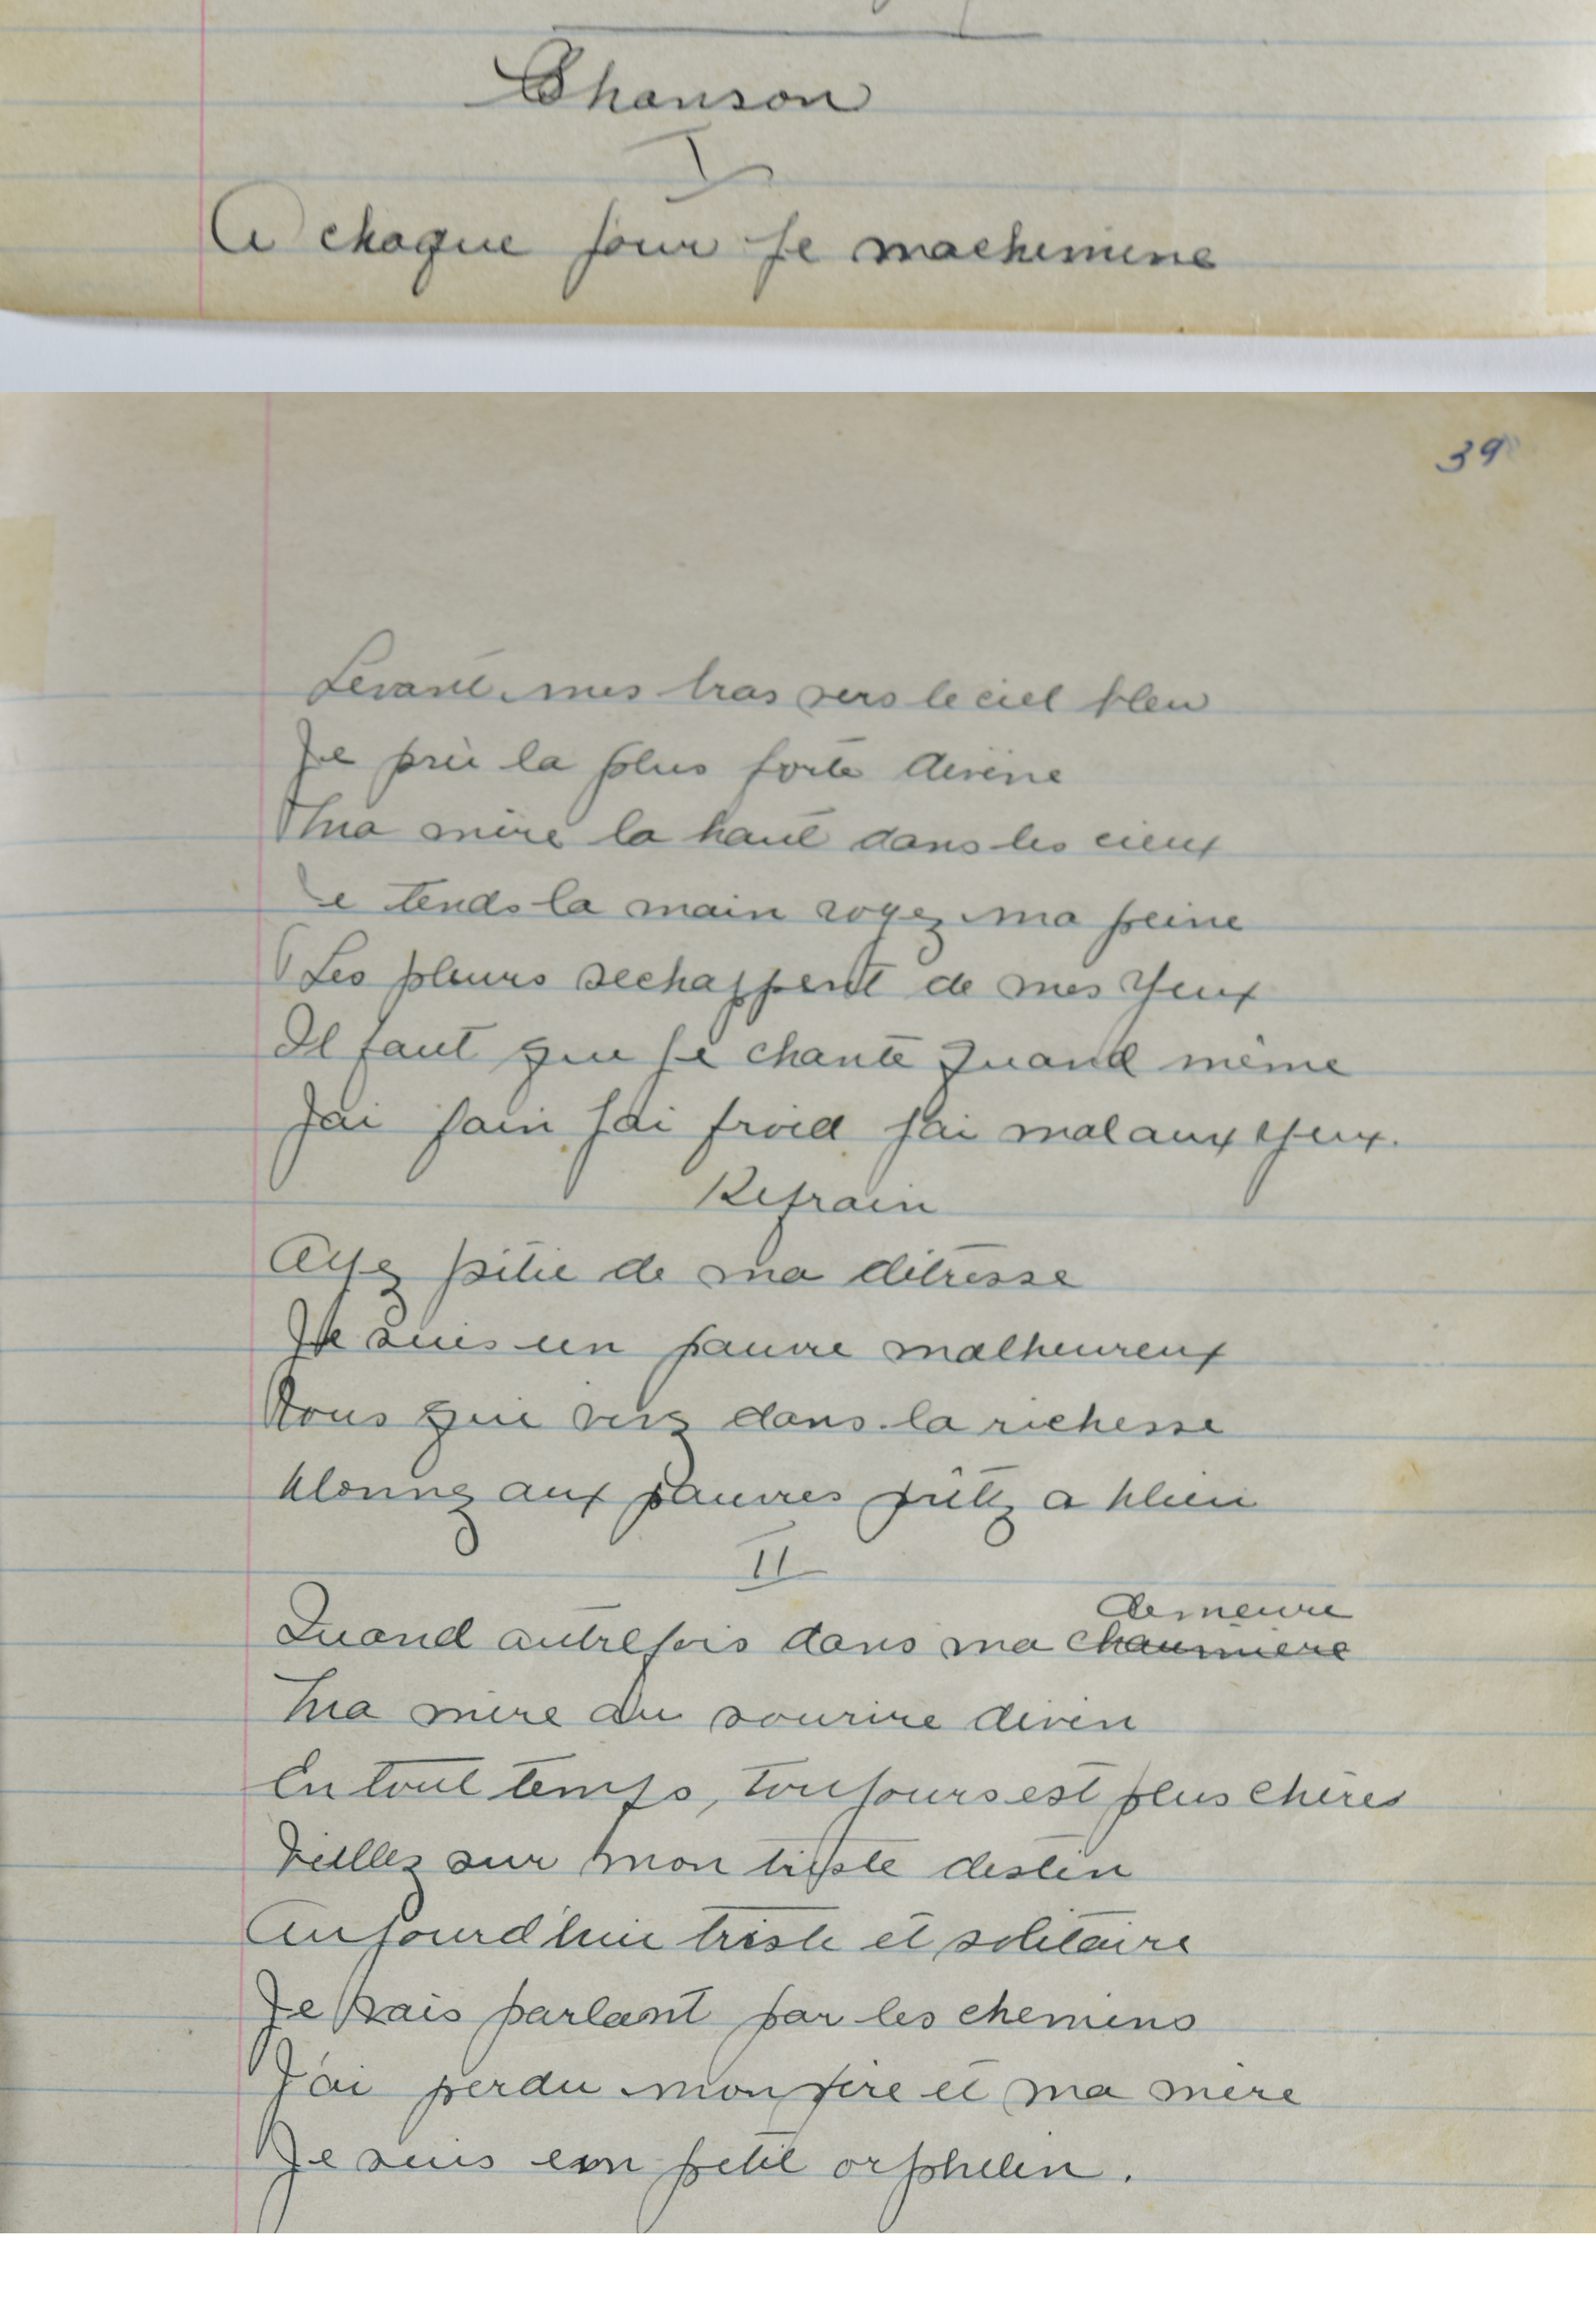 Chanson
I
A chaque jour je machemine
39
Levant mes bras vers le ciel bleu
Je prie la plus forte divine
Ma mère la haut dans les cieux
Je tends la main voyez ma peine
Les pleurs sechappent de mes yeux
Il faut que je chante quand même
Jai faim jai froid jai mal aux yeux.
Refrain
Ayez pitié de ma détresse
Je suis un pauvre malheureux
Vous qui vivz dans la richesse
Donnez aux pauvres prêtez a Dieu
II
demeure
Quand autrefois dans ma chaumière
Ma mère au sourire divin
En tout temps, toujours est plus chères
Veillez sur mon triste destin
Aujourd'hui triste et solitaire
Je vais parlant par les chemins
J'ai perdu mon père et ma mère
Je suis un petit orphelin.